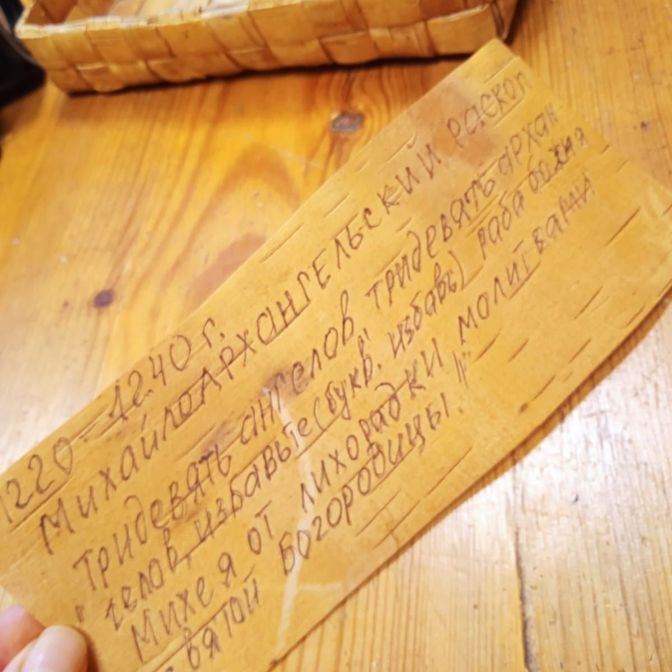 1220-1240 г.
МихайлоАРХАНГЕЛЬСКИЙ РАСКОП
"Тридевять ангелов, тридевять архан
гелов, избавьте (букв. избавь) раба божия
Михея от лихорадки молитвами
святой Богородицы."